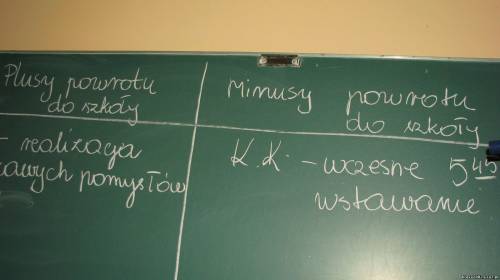 Plusy powrotu
do szkoły
- realizacja
pomysłów
Minusy powrotu
do szkoły
K.K. - wczesne 5 45
wstawanie